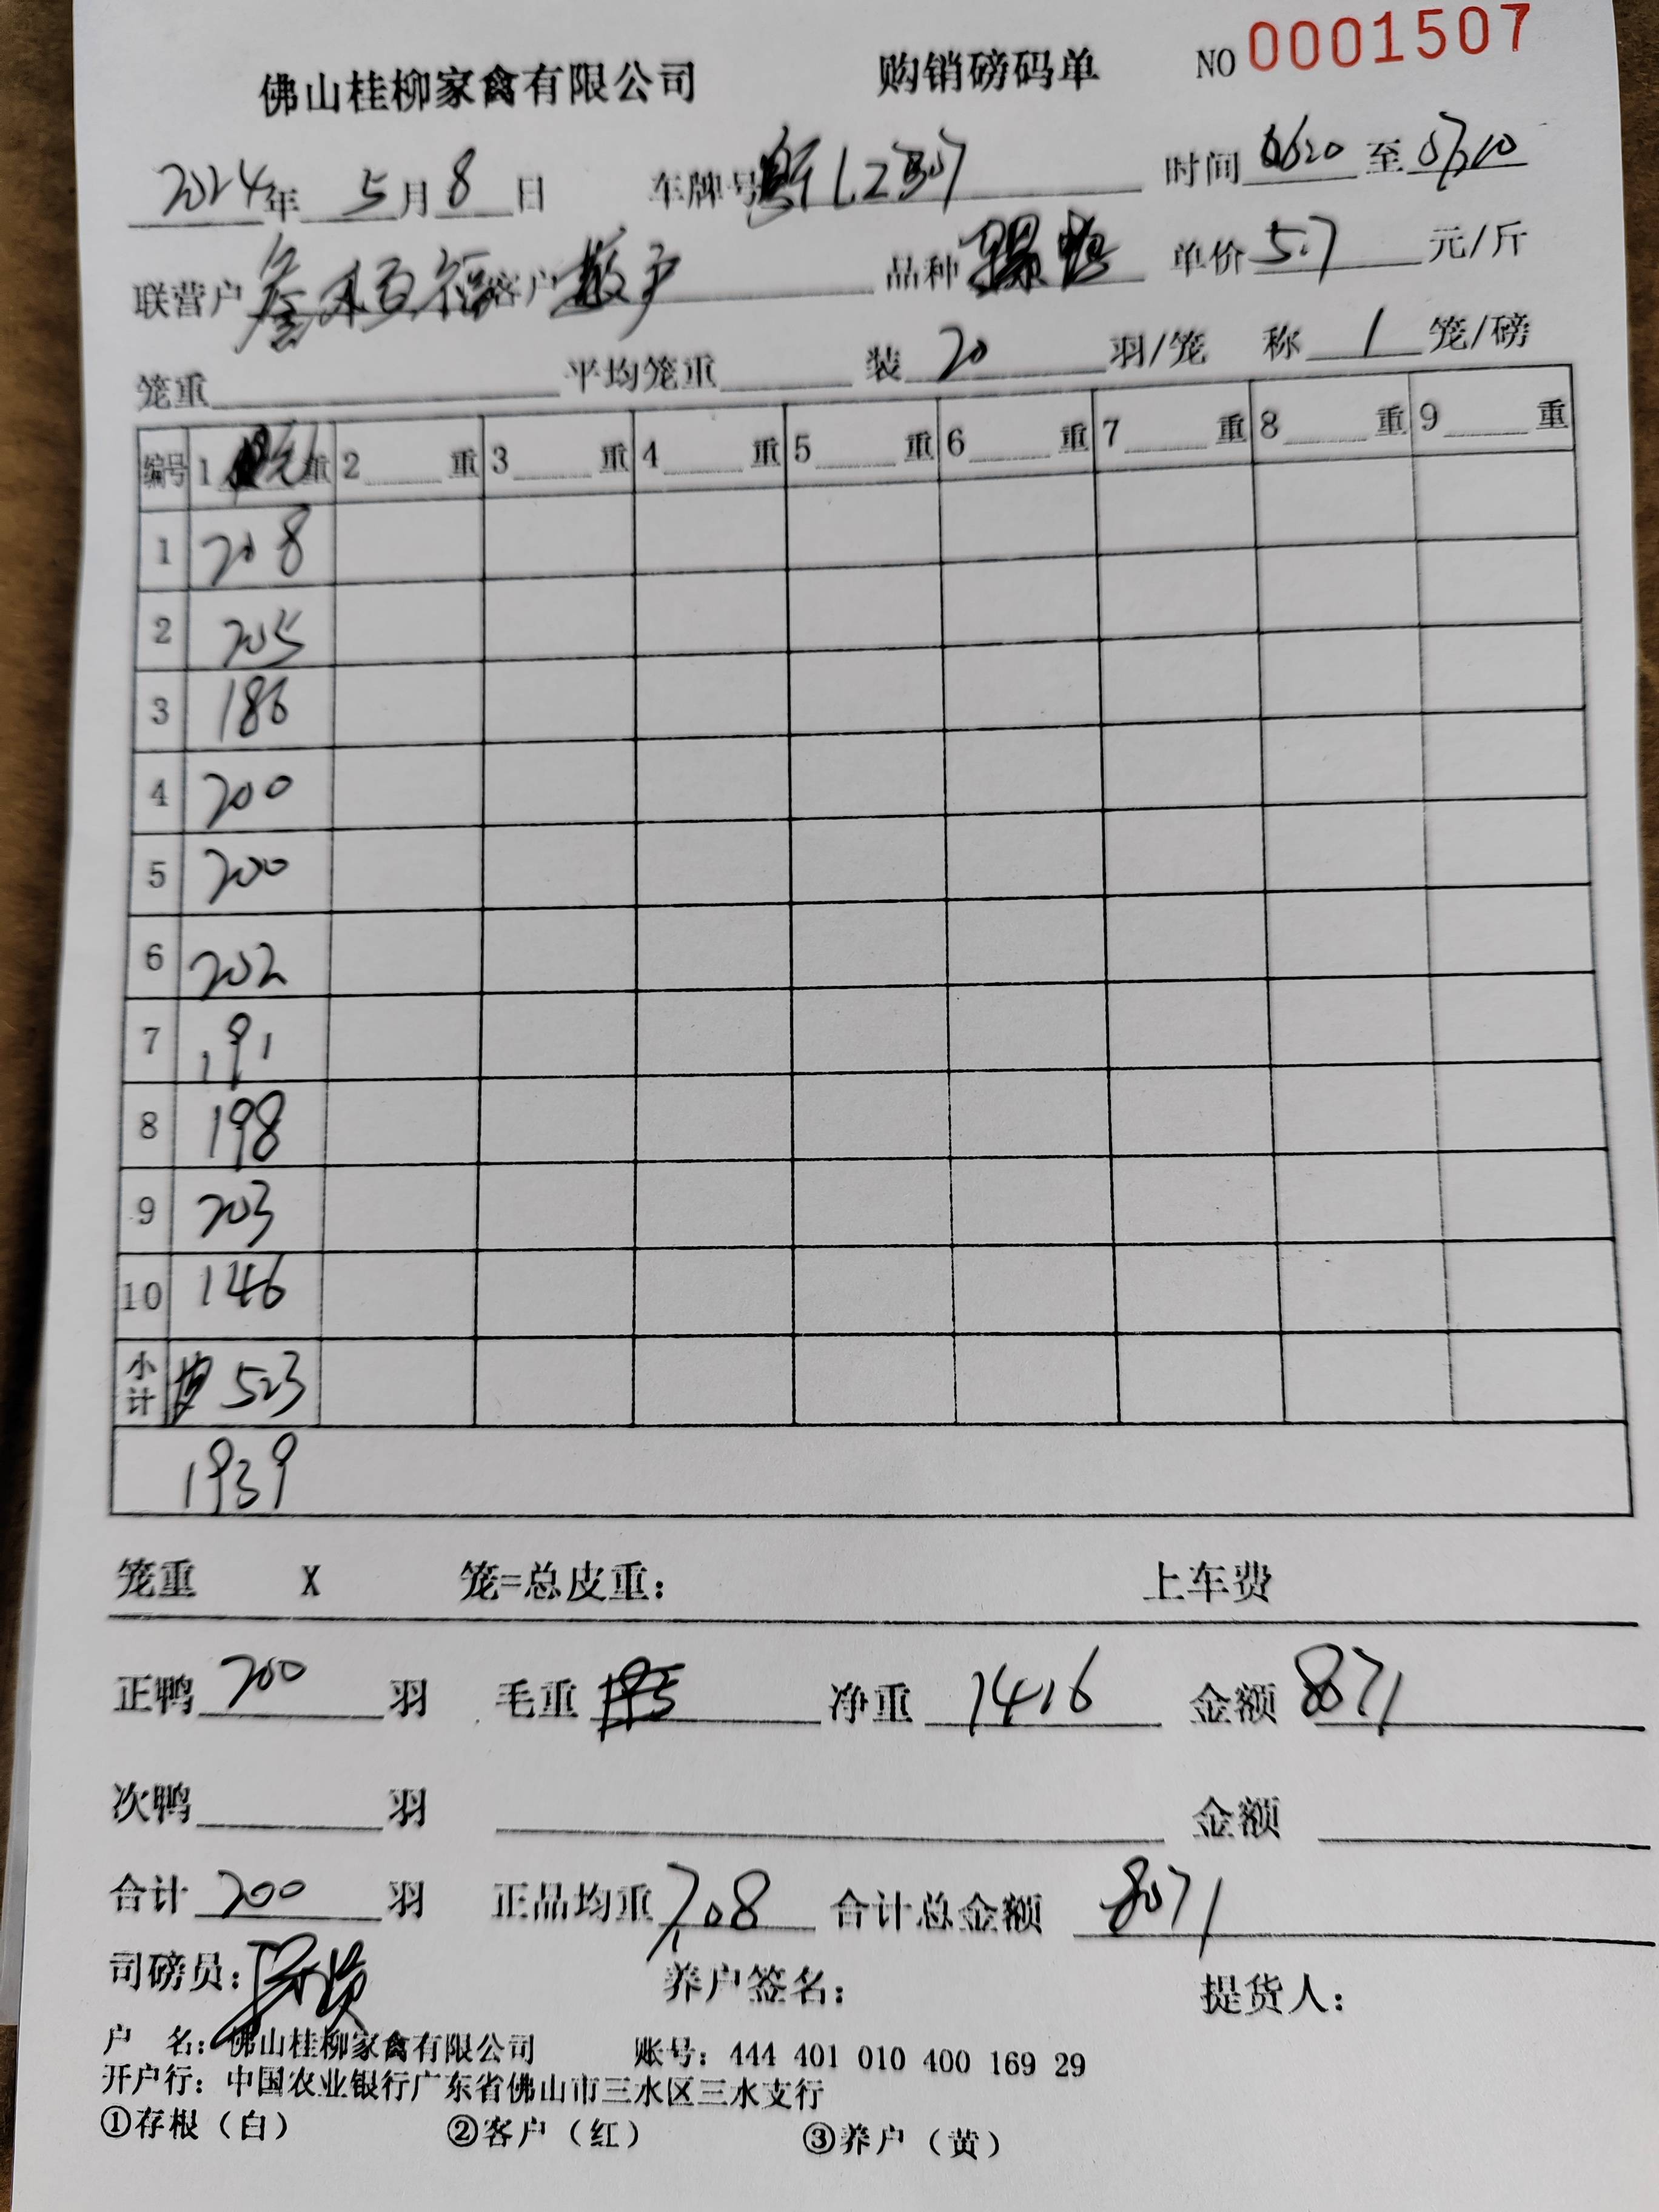 佛山桂柳家禽有限公司 购销磅码单 NO 0001507
2024年 5月 8日 车牌号 L2307 时间 0620 至 0710
联营户 百福 客户 散户 品种 单价 5.7 元/斤
笼重 平均笼重 装 20 羽/笼 称 1 笼/磅
编号 1 重 2 重 3 重 4 重 5 重 6 重 7 重 8 重 9 重
1 208
2 205
3 186
4 200
5 200
6 202
7 191
8 198
9 203
10 146
小计 523
1939
笼重 X 笼=总皮重: 上车费
正鸭 200 羽 毛重 净重 1416 金额 8071
次鸭 羽 金额
合计 200 羽 正品均重 7.08 合计总金额 8071
司磅员: 养户签名: 提货人:
户 名: 佛山桂柳家禽有限公司 账号: 444 401 010 400 169 29
开户行: 中国农业银行广东省佛山市三水区三水支行
①存根（白） ②客户（红） ③养户（黄）